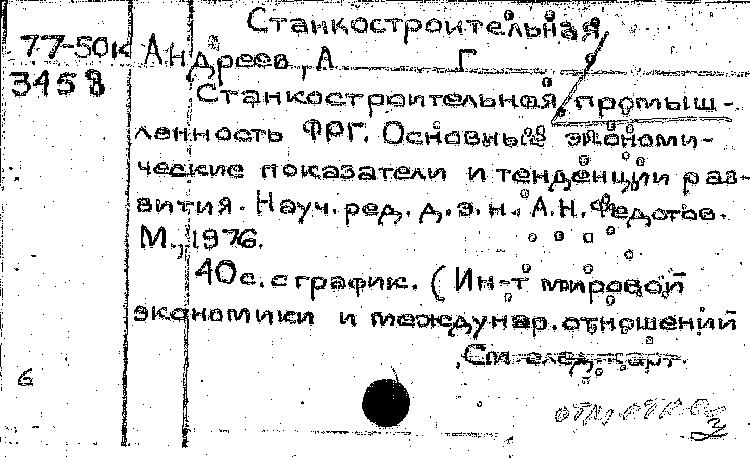 Станкостроительная
77-50к Андреев, А Г
3458
Станкостроительная промыш-
ленность ФРГ. Основные экономи-
ческие показатели и тенденции раз-
вития. Науч. ред. д. э. н. А.Н. Федотов.
М., 1976.
40 с. с график. (Ин-т мировой
экономики и междунар. отношений
См. след. карт.
6